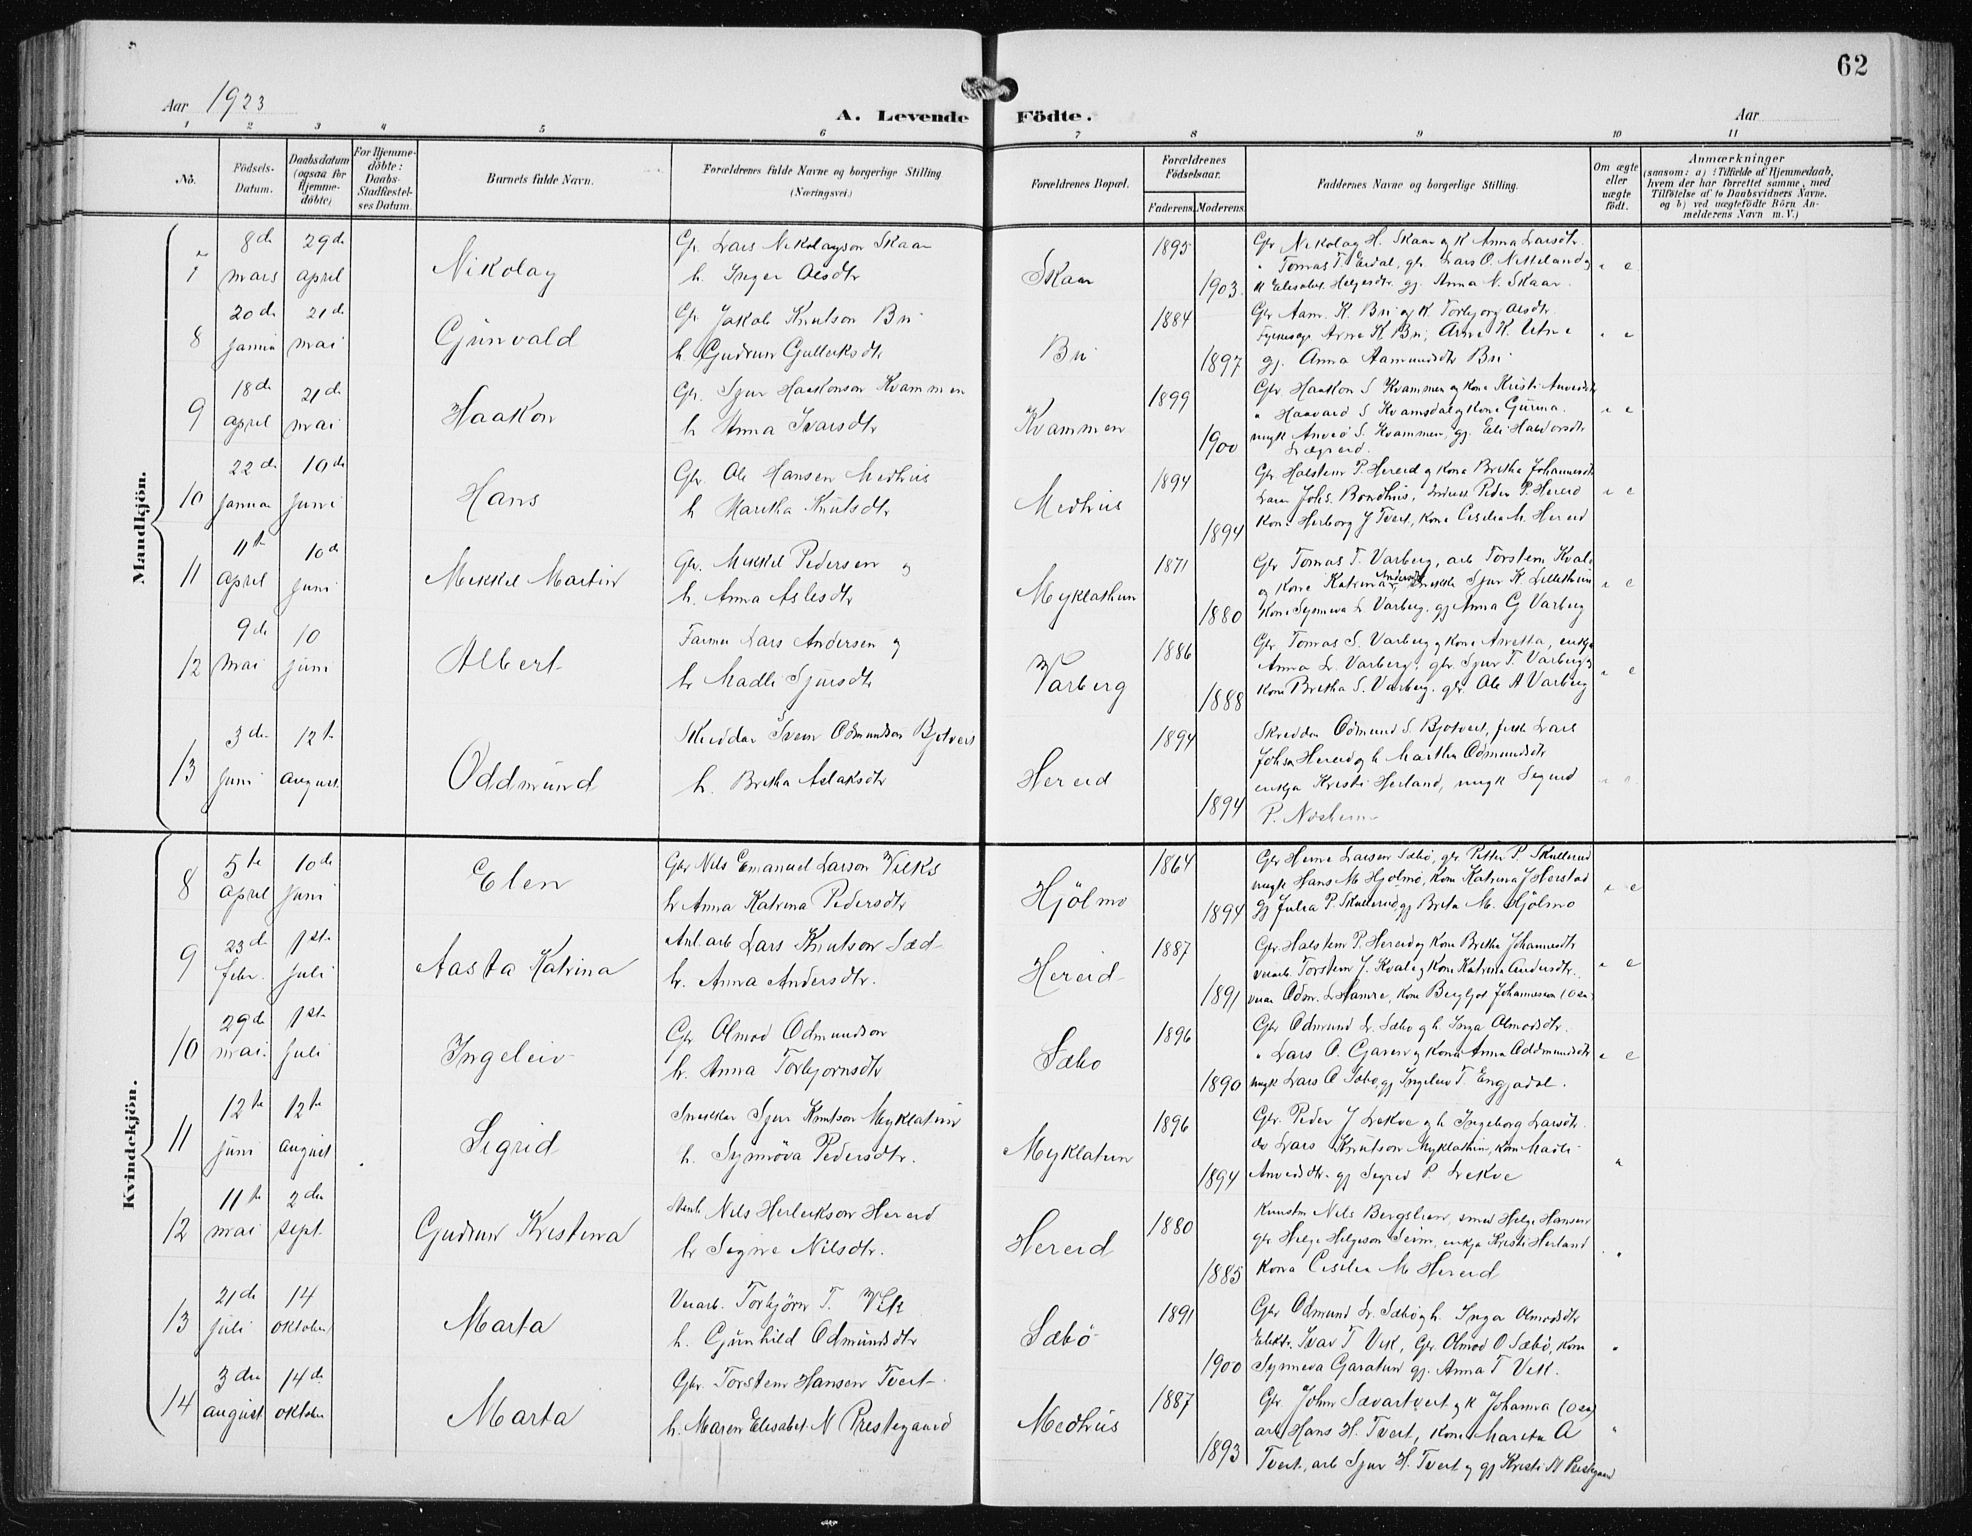 62
Aar 1923
A. Levende Födte.
Aar
1 2 3 4 5 6 7 8 9 10 11
No.
Födsels-Datum.
Daabsdatum (ogsaa for Hjemme-döbte)
For Hjemme-döbte: Daabs-Stadfæstel-ses Datum.
Barnets fulde Navn.
Forældrenes fulde Navne og borgerlige Stilling (Næringsvei.)
Forældrenes Bopæl.
Forældrenes Födselsaar.
Faderens. Moderens.
Faddernes Navne og borgerlige Stilling.
Om ægte eller uægte födt.
Anmærkninger
(saasom: a) i Tilfælde af Hjemmedaab,
hvem der har forrettet samme, med
Tilföielse af to Daabsvidners Navne.
og b) ved uægtefödte Börn An-
melderens Navn m.V.)
Mandkjön.
7 8de mars 29de april Nikolay
Gbr. Lars Nikolayson Skaar
h. Inger Olsdtr
Skaar 1895 1903
Gbr Nikolay H. Skaar og k Anna Larsdtr.
" Tomas T. Eidal, gbr. Lars O. Netteland og
k Elisabet Helgesdtr. gj. Anna N. Skaar.
" e
8 20de janua 21de mai Gunvald
Gbr Jakob Knutson Bu
h. Gudrun Gulleiksdtr
Bu 1884 1897
Gbr Aam. K. Bu og k. Torbjorg Olsdtr.
Arne K. Bu, Arne K. Utne
gj. Anna Aamundsdtr Bu
" e
9 18de april 21de mai Haakon
Gbr. Sjur Haakonson Kvammen
h Anna Ivarsdtr
Kvammen 1899 1900
Gbr Haakon S Kvammen og kona Kristi
" Haavard S Kvamsdal og kona Gurina.
ungk S. Kvammen, gj. Eli Haldorsdtr
Lægreid.
" e
10 22de janua 10de juni Hans
Gbr. Ole Hansen Medhus
h Maritha Knutsdtr
Medhus 1894 1894
Gbr Halstein P. Hereid og kona Bretha Johannesdtr
Johs. Bondhus, Peder P. Hereid
Kona Herborg J Tveit, kona Cesilia M. Hereid
" e
11 11te april 10de juni Mikkel Martin
Gbr. Mikkel Pedersen og
h. Anna Aslesdtr
Myklathun 1871 1880
Gbr Tomas T. Varberg, arb Torstein Kvale
og kona Katrina Andersdtr, snekk Sjur K. Lillethun
Kona Synneva L Varberg. gj Anna G Varberg
" e
12 9de mai 10 juni Albert
Farmer Lars Andersen og
h Madli Sjursdtr
Varberg 1886 1888
Gbr Tomas S. Varberg og kona enkja
Anna L. Varberg, gbr. Sjur T. Varberg og
kona Bretha S. Varberg. gbr. Ole A Varberg
" e
13 3die juni 12te august Oddmund
Skreddar Svein Odmundson Bjotveit
h. Bretha Aslaksdtr
Hereid 1894 1894
Skreddar Odmund S. Bjotveit, Lars
Johsn Hereid og h Martha Odmundsdtr
enkja Kristi Herland, ungk Sigurd
P.
" e
Kvindekjön.
8 5te april 10de juni Elen
Gbr Nils Emanuel Larson Vilks
h. Anna Katrina Pedersdtr
Hjölmo 1864 1894
Gbr Heine Larsen Sæbö, gbr. Petter P. Skullerud
ungk Hans M Hjolmo, kona Katrina J Herstad
gj Julia P. Skullerud gj Brita M. Hjölmo
" e
9 23de febr. 1ste juli Aasta Katrina
Anl. arb Lars Knutson Sæd
h. Anna Andersdtr.
Hereid 1887 1891
Gbr Halstein P. Hereid og kona Bretha Johannesdtr
verarb. Torstein J. Kvale og kona Katrina Andersdtr.
Odm. L Hamre, kona Bergljot Johannessen (Osa)
" e
10 29de mai. 1ste juli Ingeleiv
Gbr Olmod Odmundson
h. Anna Torbjornsdtr
Sæbo 1896 1890
Gbr Odmund L. Sæbo og h. Inga Olmodsdtr.
" Lars O. Garen og kona Anna Oddmundsdtr
ungk Lars O Sæbo, gj Ingeleiv T. Engjadal.
" e
11 12te juni 12te august Sigrid
Snekkar Sjur Knutson Myklatun
h. Synnöva Pedersdtr.
Myklatun 1896 1894
Gbr. Peder J Lekve og h Ingeborg Larsdtr.
do Lars Knutson Myklathun, kona Madli
gj Sigrid P. Lekve
"
12 11te mai 2den sept. Gudrun Kristina
Nils Herleikson Hereid
h Signe Nilsdtr.
Hereid 1880 1885
Kunstm Nils Bergslien, smed Helge Hansen
gbr Helge Helgeson Seim, enkja Kristi Herland
kona Cesilia M Hereid
"
13 21de juli 14 oktober Marta
Verarb. Torbjörn T. Vik
h. Gunhild Odmundsdtr
Sæbö 1891 1900
Gbr Odmund L. Sæbö og h. Inga Olmodsdtr
Elektr. Ivar T Vik, Gbr. Olmod O Sæbö, kona
Synneva Garatun gj. Anna T Vik.
"
14 3die august 14de oktober Marta
Gbr. Torstein Hansen Tveit
h. Maren Elisabet N Prestegaard
Medhus 1887 1893
Gbr John Sævartveit og k Johanna (Osa)
arb Hans H. Tveit, kona Marita A
Tveit, arb Sjur H. Tveit og gj Kristi N Prestegaard
"